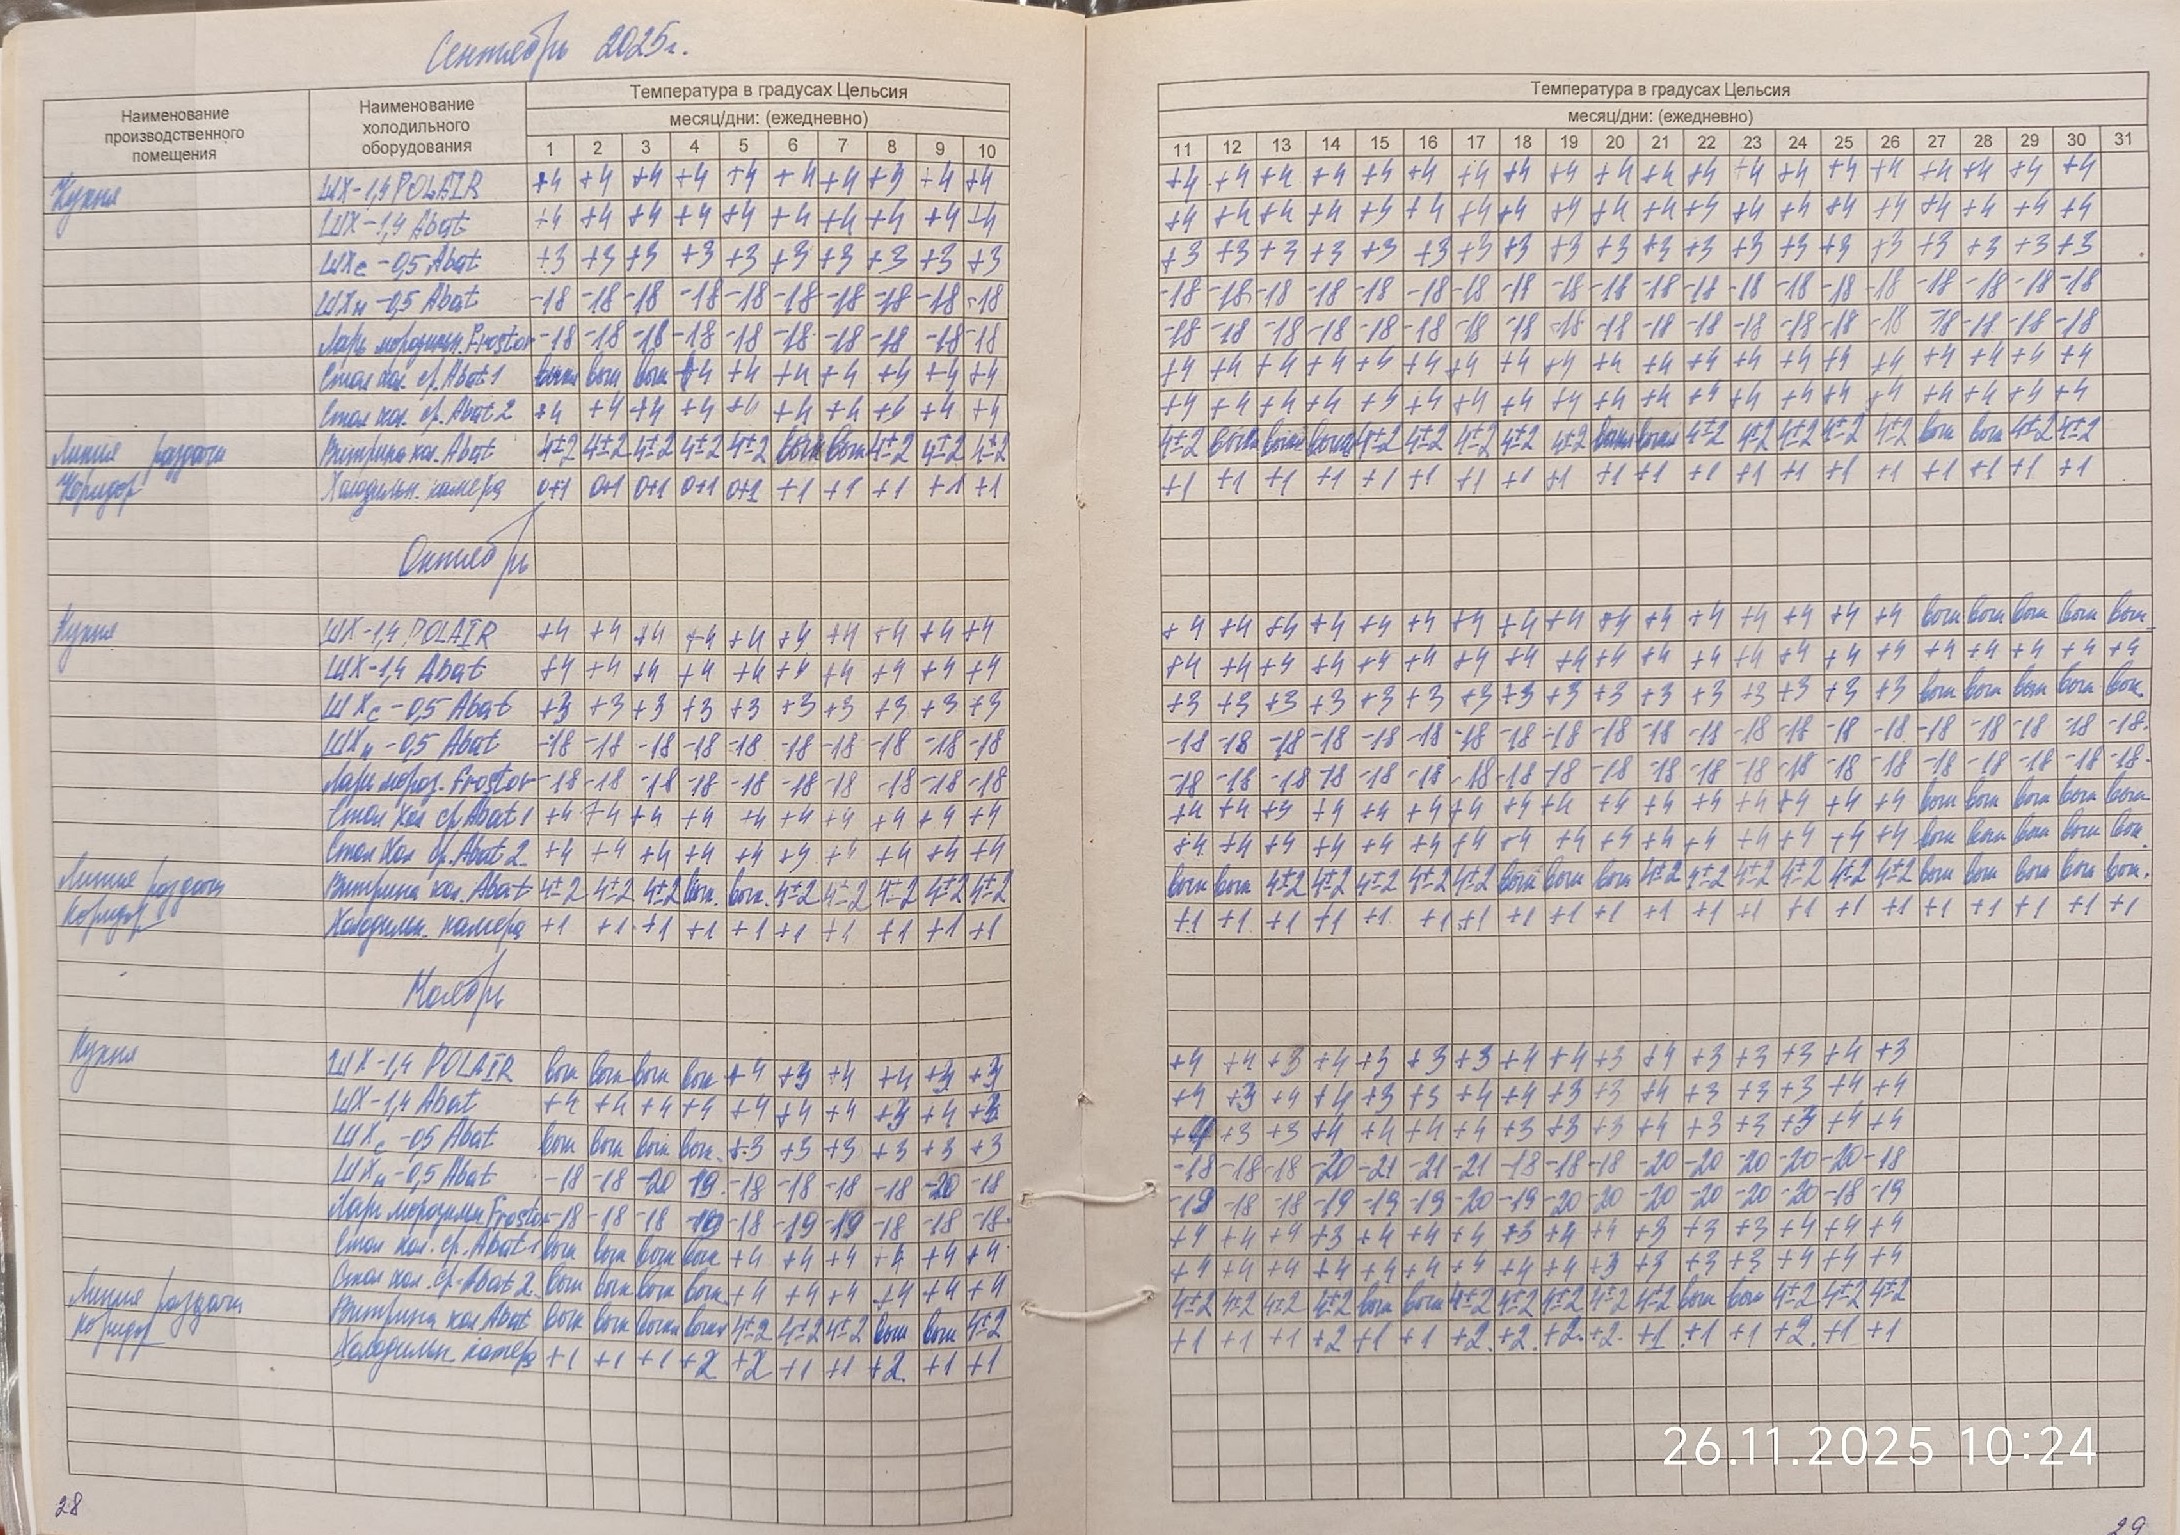 Сентябрь 2025г.
Наименование производственного помещения
Наименование холодильного оборудования
Температура в градусах Цельсия
месяц/дни: (ежедневно)
1 2 3 4 5 6 7 8 9 10
Температура в градусах Цельсия
месяц/дни: (ежедневно)
11 12 13 14 15 16 17 18 19 20 21 22 23 24 25 26 27 28 29 30 31
Кухня ШХ-1,4 POLAIR +4 +4 +4 +4 +4 +4 +4 +4 +4 +4 +4 +4 +4 +4 +4 +4 +4 +4 +4 +4 +4 +4 +4 +4 +4 +4 +4 +4 +4 +4
ШХ-1,4 Abat +4 +4 +4 +4 +4 +4 +4 +4 +4 +4 +4 +4 +4 +4 +4 +4 +4 +4 +4 +4 +4 +4 +4 +4 +4 +4 +4 +4 +4 +4
ШХс-0,5 Abat +3 +3 +3 +3 +3 +3 +3 +3 +3 +3 +3 +3 +3 +3 +3 +3 +3 +3 +3 +3 +3 +3 +3 +3 +3 +3 +3 +3 +3 +3
ШХн-0,5 Abat -18 -18 -18 -18 -18 -18 -18 -18 -18 -18 -18 -18 -18 -18 -18 -18 -18 -18 -18 -18 -18 -18 -18 -18 -18 -18 -18 -18 -18 -18
Ларь морозильн. Frostor -18 -18 -18 -18 -18 -18 -18 -18 -18 -18 -18 -18 -18 -18 -18 -18 -18 -18 -18 -18 -18 -18 -18 -18 -18 -18 -18 -18 -18 -18
Стол хол. ср. Abat 1 выкл выкл выкл +4 +4 +4 +4 +4 +4 +4 +4 +4 +4 +4 +4 +4 +4 +4 +4 +4 +4 +4 +4 +4 +4 +4 +4 +4 +4 +4
Стол хол. ср. Abat 2 +4 +4 +4 +4 +4 +4 +4 +4 +4 +4 +4 +4 +4 +4 +4 +4 +4 +4 +4 +4 +4 +4 +4 +4 +4 +4 +4 +4 +4 +4
Линия раздачи Витрина хол. Abat 4±2 4±2 4±2 4±2 4±2 выкл выкл 4±2 4±2 4±2 4±2 выкл выкл выкл 4±2 4±2 4±2 4±2 4±2 выкл выкл 4±2 4±2 4±2 4±2 4±2 выкл выкл 4±2 4±2
Коридор Холодильн. камера 0+1 0+1 0+1 0+1 0+1 +1 +1 +1 +1 +1 +1 +1 +1 +1 +1 +1 +1 +1 +1 +1 +1 +1 +1 +1 +1 +1 +1 +1 +1 +1
Октябрь
Кухня ШХ-1,4 POLAIR +4 +4 +4 +4 +4 +4 +4 +4 +4 +4 +4 +4 +4 +4 +4 +4 +4 +4 +4 +4 +4 +4 +4 +4 +4 +4 выкл выкл выкл выкл выкл
ШХ-1,4 Abat +4 +4 +4 +4 +4 +4 +4 +4 +4 +4 +4 +4 +4 +4 +4 +4 +4 +4 +4 +4 +4 +4 +4 +4 +4 +4 +4 +4 +4 +4 +4
ШХс-0,5 Abat +3 +3 +3 +3 +3 +3 +3 +3 +3 +3 +3 +3 +3 +3 +3 +3 +3 +3 +3 +3 +3 +3 +3 +3 +3 +3 выкл выкл выкл выкл выкл.
ШХн-0,5 Abat -18 -18 -18 -18 -18 -18 -18 -18 -18 -18 -18 -18 -18 -18 -18 -18 -18 -18 -18 -18 -18 -18 -18 -18 -18 -18 -18 -18 -18 -18 -18.
Ларь мороз. Frostor -18 -18 -18 -18 -18 -18 -18 -18 -18 -18 -18 -18 -18 -18 -18 -18 -18 -18 -18 -18 -18 -18 -18 -18 -18 -18 -18 -18 -18 -18 -18.
Стол хол ср. Abat 1 +4 +4 +4 +4 +4 +4 +4 +4 +4 +4 +4 +4 +3 +4 +4 +4 +4 +4 +4 +4 +4 +4 +4 +4 +4 +4 выкл выкл выкл выкл выкл
Стол хол ср. Abat 2 +4 +4 +4 +4 +4 +4 +4 +4 +4 +4 +4 +4 +4 +4 +4 +4 +4 +4 +4 +4 +4 +4 +4 +4 +4 +4 выкл выкл выкл выкл выкл.
Линия раздачи Витрина хол. Abat 4±2 4±2 4±2 выкл. выкл. 4±2 4±2 4±2 4±2 4±2 выкл выкл 4±2 4±2 4±2 4±2 4±2 выкл выкл выкл 4±2 4±2 4±2 4±2 4±2 4±2 выкл выкл выкл выкл выкл.
Коридор Холодильн. камера +1 +1 +1 +1 +1 +1 +1 +1 +1 +1 +1 +1 +1 +1 +1 +1 +1 +1 +1 +1 +1 +1 +1 +1 +1 +1 +1 +1 +1 +1 +1
Ноябрь
Кухня ШХ-1,4 POLAIR выкл выкл выкл выкл +4 +3 +4 +4 +3 +3 +4 +4 +3 +4 +3 +3 +3 +4 +4 +3 +4 +3 +3 +3 +4 +3
ШХ-1,4 Abat +4 +4 +4 +4 +4 +4 +4 +3 +4 +3 +4 +3 +4 +4 +3 +3 +4 +4 +3 +3 +4 +3 +3 +3 +4 +4
ШХс-0,5 Abat выкл выкл выкл выкл. +3 +3 +3 +3 +3 +3 +4 +3 +3 +4 +4 +4 +4 +3 +3 +3 +4 +3 +3 +3 +4 +4
ШХн-0,5 Abat -18 -18 -20 -19 -18 -18 -18 -18 -20 -18 -18 -18 -18 -20 -21 -21 -21 -18 -18 -18 -20 -20 -20 -20 -20 -18
Ларь морозильн Frostor -18 -18 -18 -19 -18 -19 -19 -18 -18 -18. -19 -18 -18 -19 -19 -19 -20 -19 -20 -20 -20 -20 -20 -20 -18 -19
Стол хол. ср. Abat 1 выкл выкл выкл выкл +4 +4 +4 +4 +4 +4 +4 +4 +4 +3 +4 +4 +4 +3 +4 +4 +3 +3 +3 +4 +4 +4
Стол хол. ср. Abat 2 выкл выкл выкл выкл. +4 +4 +4 +4 +4 +4 +4 +4 +4 +4 +4 +4 +4 +4 +4 +3 +3 +3 +3 +4 +4 +4
Линия раздачи Витрина хол Abat выкл выкл выкл выкл 4±2 4±2 4±2 выкл выкл 4±2 4±2 4±2 4±2 4±2 выкл выкл 4±2 4±2 4±2 4±2 4±2 выкл выкл 4±2 4±2 4±2
Коридор Холодильн. камера +1 +1 +1 +2 +2 +1 +1 +2. +1 +1 +1 +1 +1 +2 +1 +1 +2. +2. +2. +2. +1. +1 +1 +2. +1 +1
26.11.2025 10:24
28
29